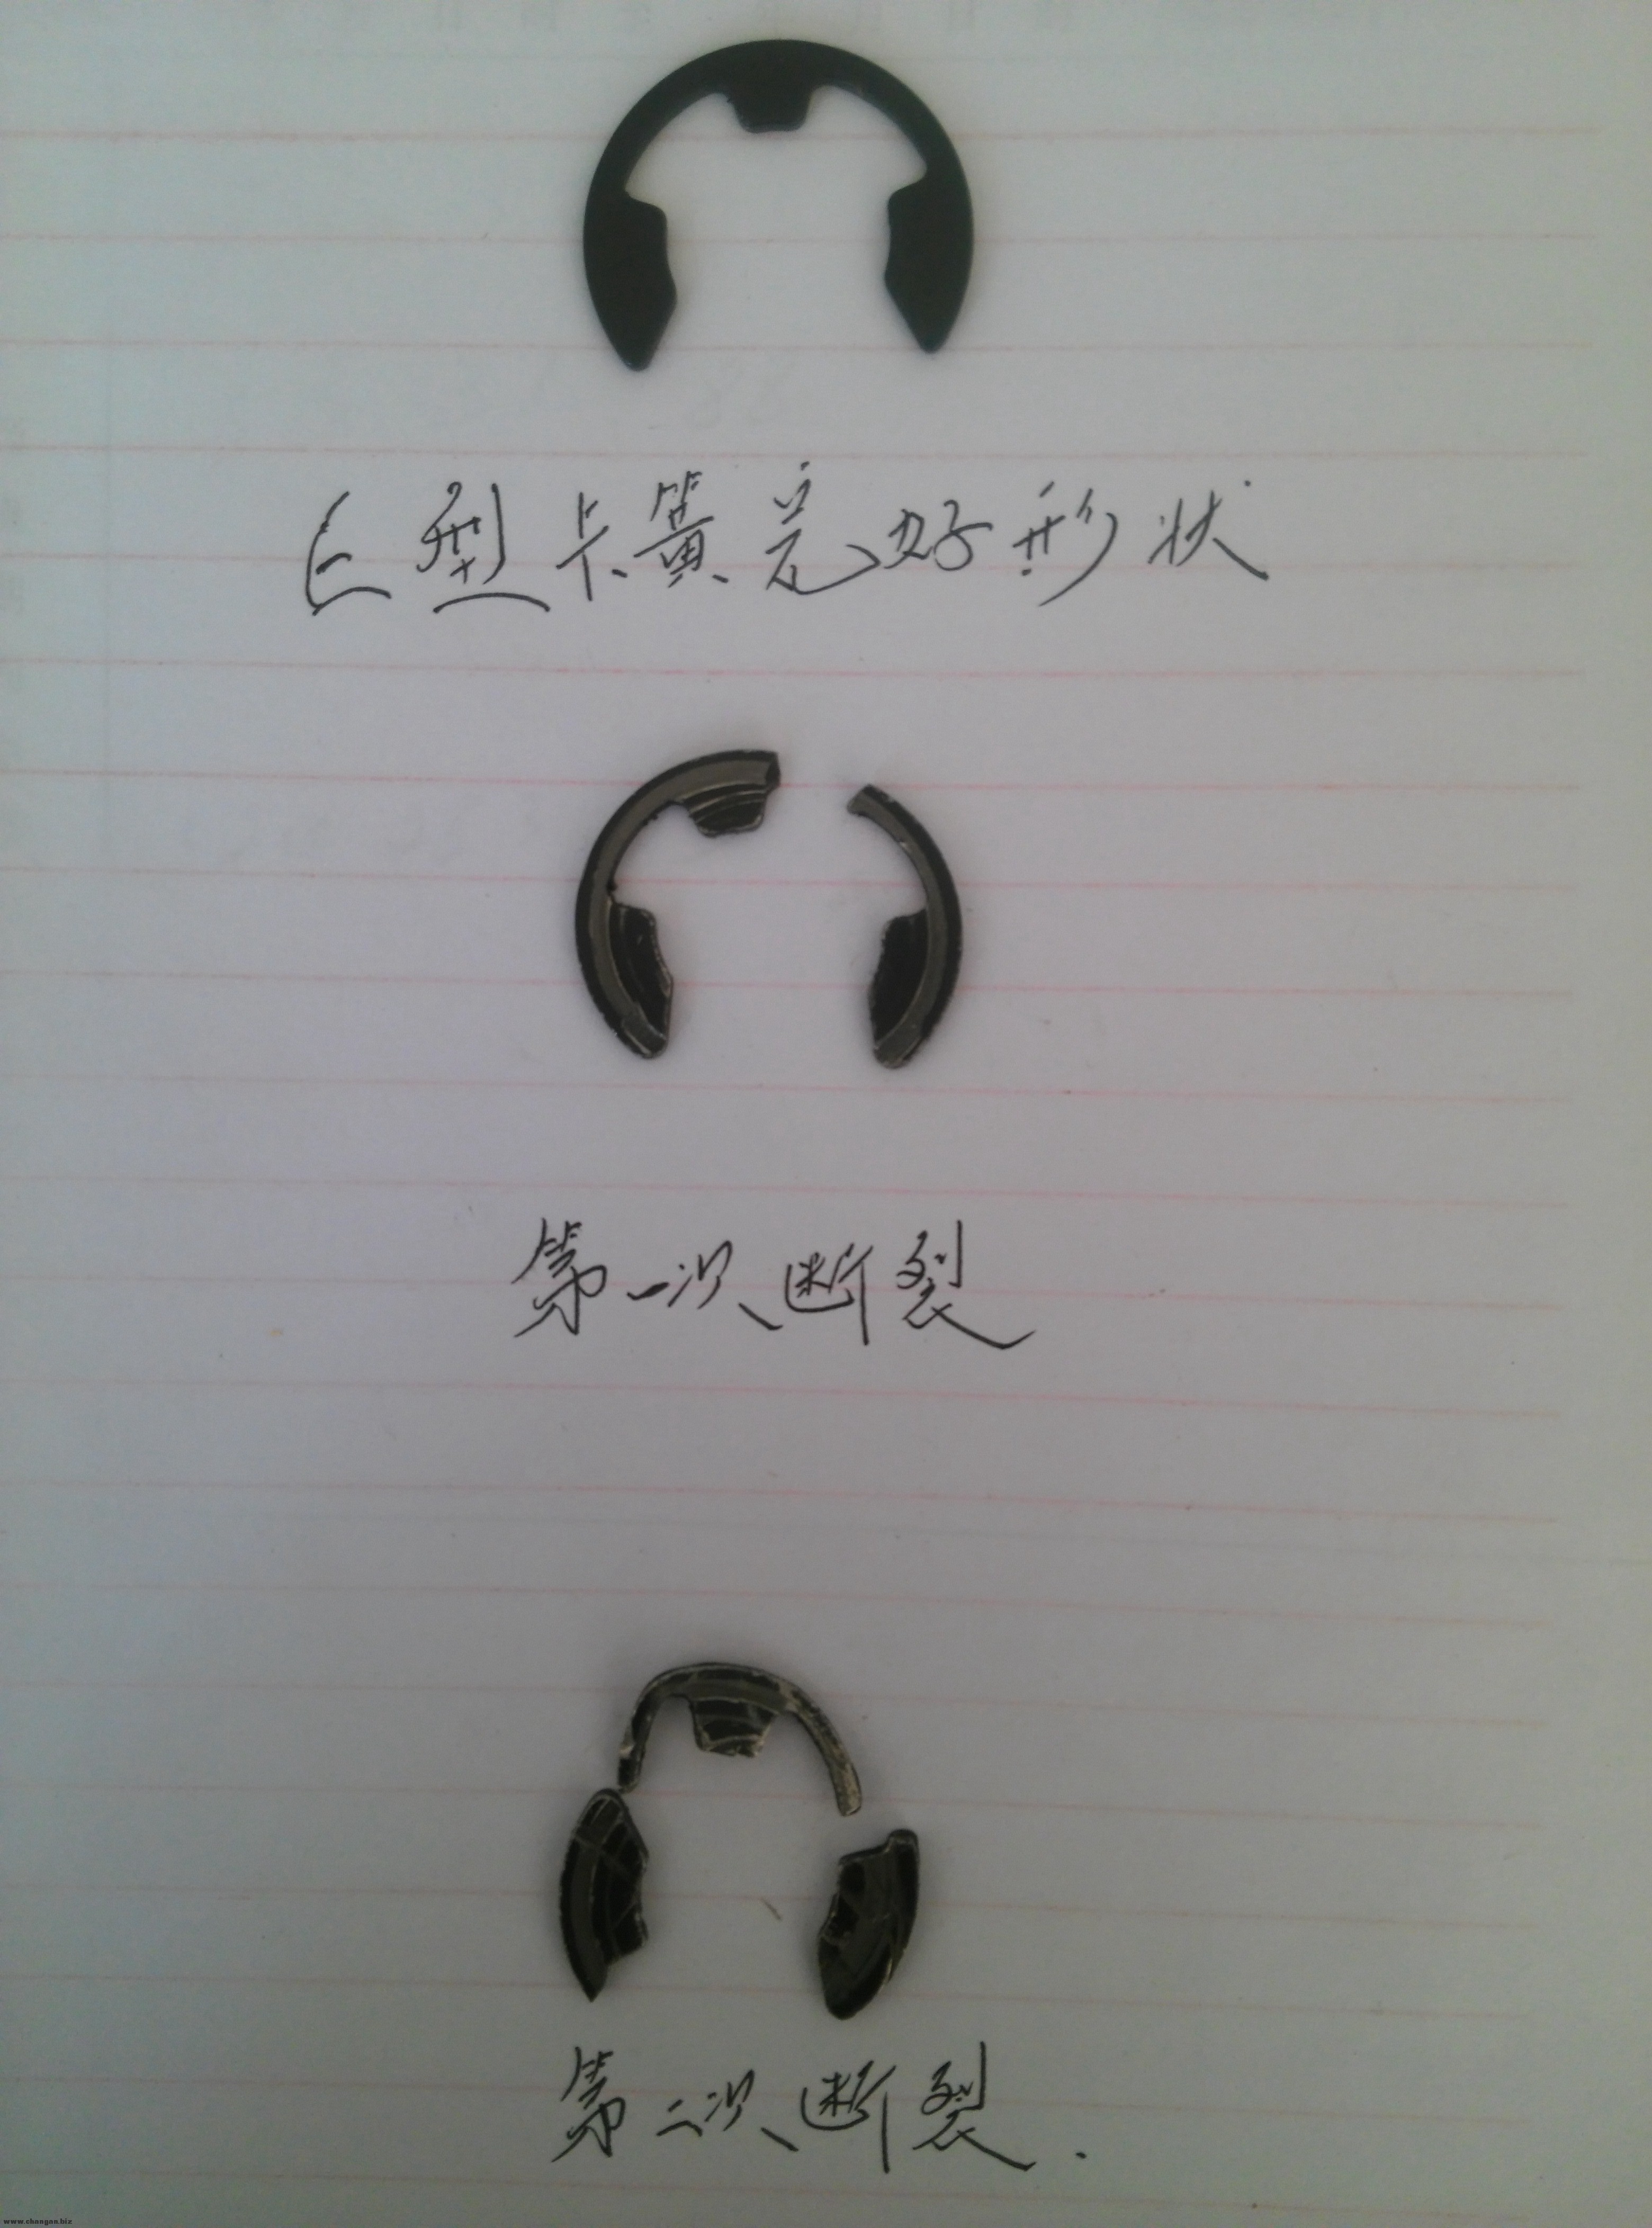 E型卡簧完好形状
第一次断裂
第二次断裂.
www.changan.biz